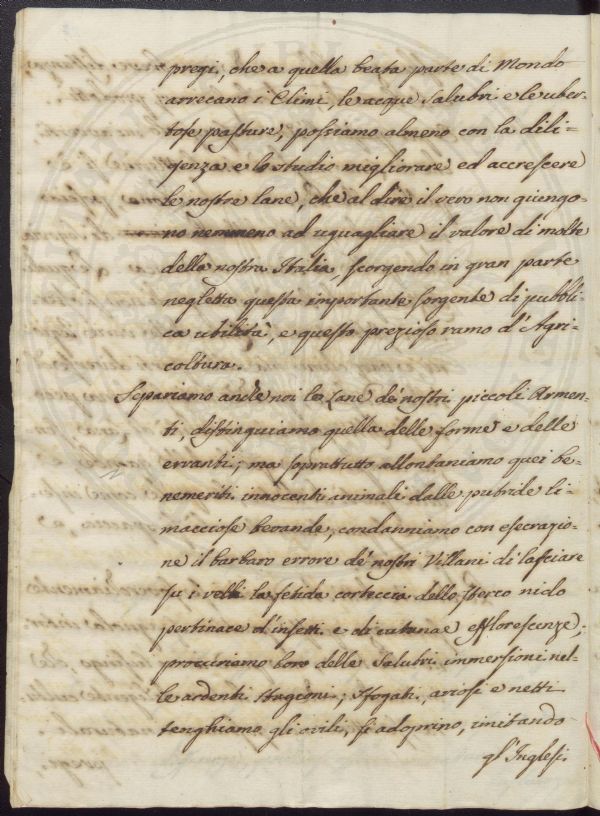 pregi, che a quella beata parte di Mondo
arrecano i Climi, le acque salubri e le uber-
tose pasture, possiamo almeno con la dili-
genza e lo studio migliorare ed accrescere
le nostre lane, che al dire il vero non giungo-
no nemmeno ad uguagliare il valore di molte
della nostra Italia, scorgendo in gran parte
negletta questa importante sorgente di pubbli-
ca utilità, e questo prezioso ramo d'Agri-
coltura.
Separiamo anche noi le Lane de' nostri piccoli Armen-
ti, distinguiamo quella delle forme e delle
erranti; ma soprattutto allontaniamo quei be-
nemeriti innocenti animali dalle putride li-
macciose bevande, condanniamo con esecrazio-
ne il barbaro errore de' nostri Villani di lasciare
su i velli la fetida corteccia dello sterco nido
pertinace d'insetti e di cutanae efflorescenze;
procuriamo loro delle salubri immersioni nel-
le ardenti stagioni; sfogati, ariosi e netti
tenghiamo gli ovili, si adoprino, imitando
gl'Inglesi